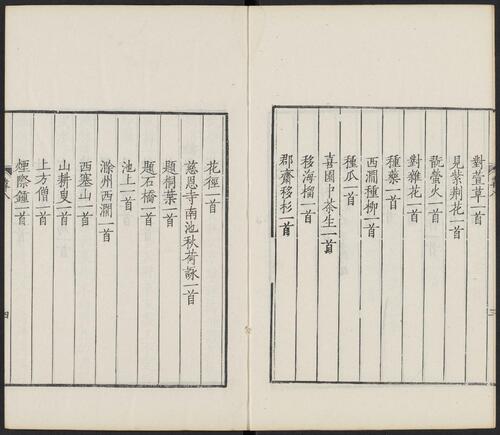 對萱草一首
見紫荆花一首
翫螢火一首
對雜花一首
種藥一首
西澗種柳一首
種瓜一首
喜園中茶生一首
移海榴一首
郡齋移杉一首
三
花徑一首
慈恩寺南池秋荷詠一首
題桐葉一首
題石橋一首
池上一首
滁州西澗一首
西塞山一首
山耕叟一首
上方僧一首
煙際鐘一首
四